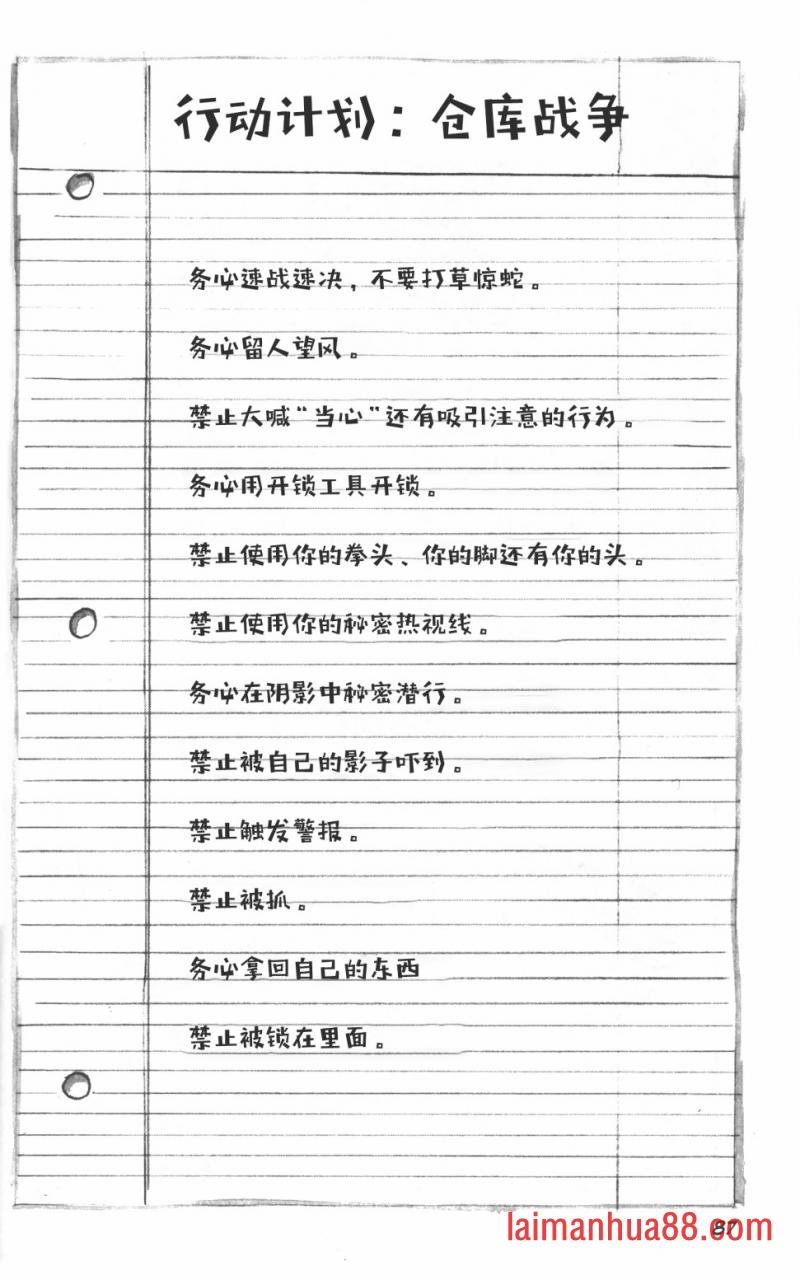 行动计划：仓库战争
务必速战速决，不要打草惊蛇。
务必留人望风。
禁止大喊“当心”还有吸引注意的行为。
务必用开锁工具开锁。
禁止使用你的拳头、你的脚还有你的头。
禁止使用你的秘密热视线。
务必在阴影中秘密潜行。
禁止被自己的影子吓到。
禁止触发警报。
禁止被抓。
务必拿回自己的东西
禁止被锁在里面。
87
laimanhua88.com